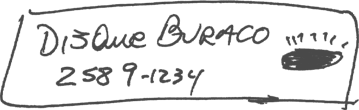 DISQUE BURACO
2589-1234